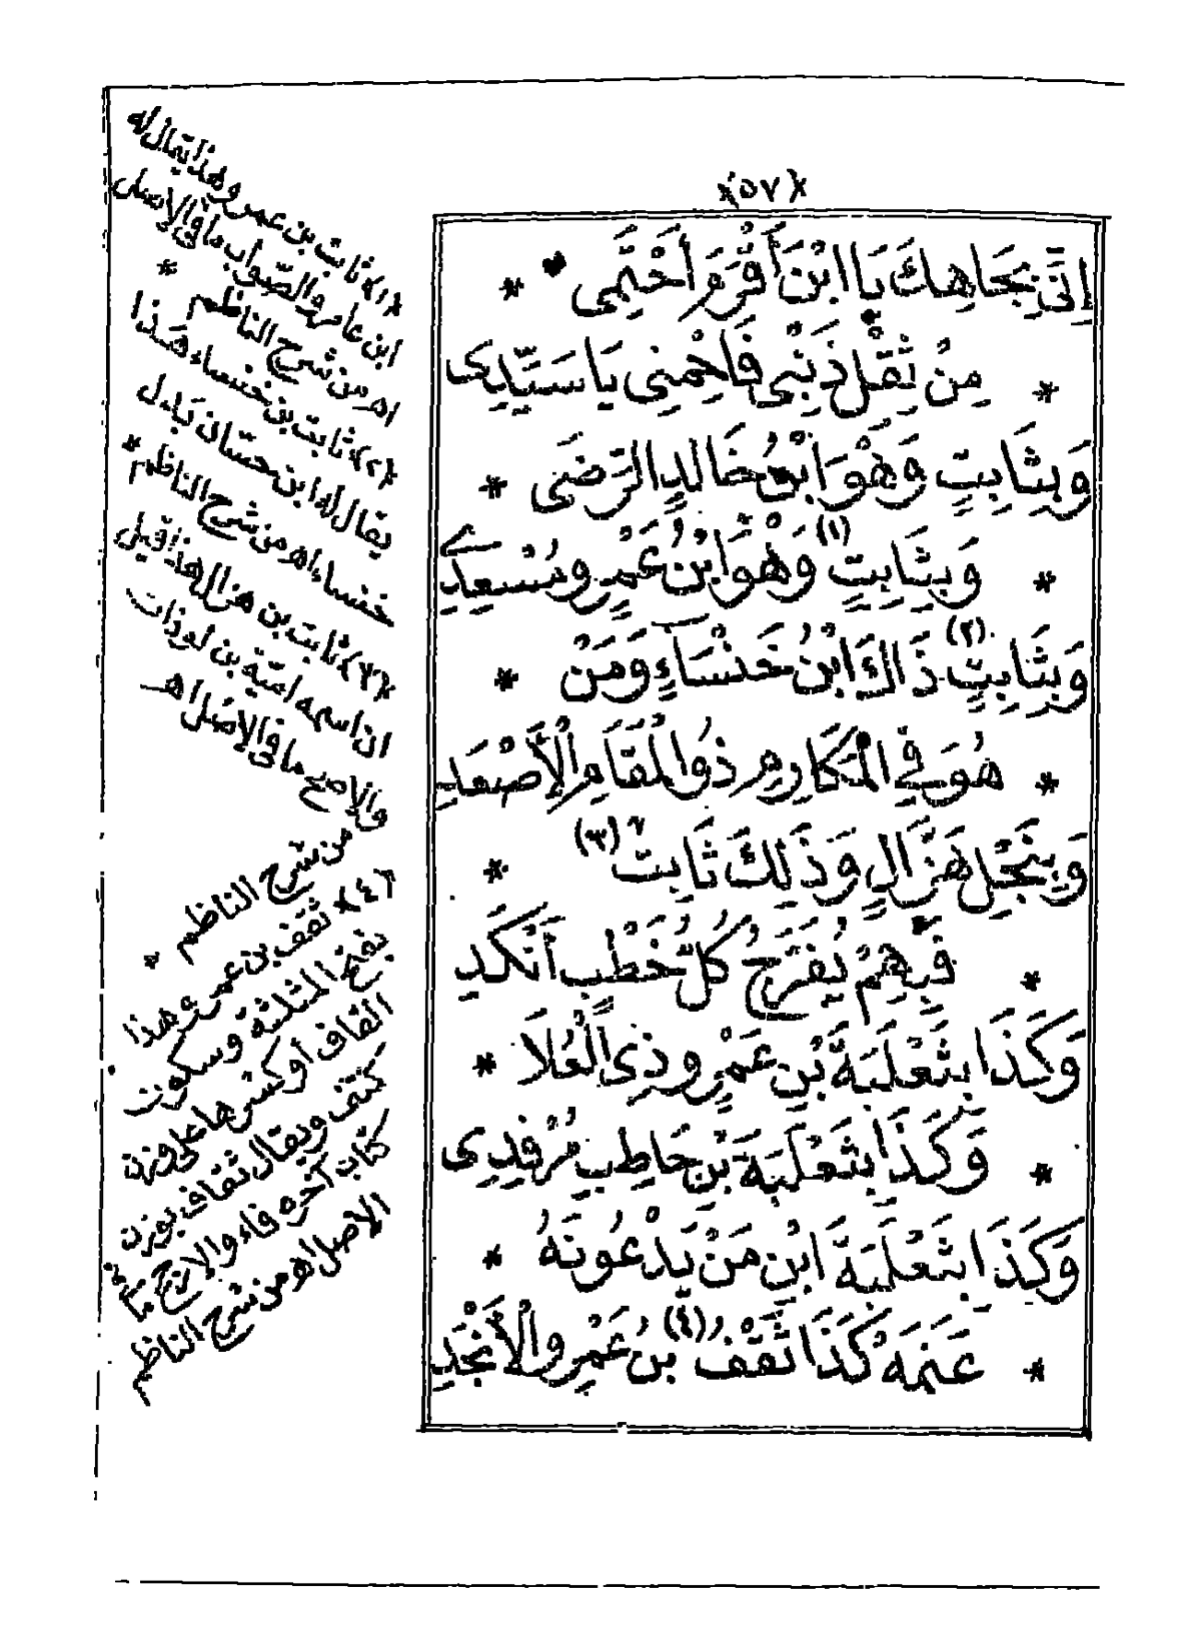 ﴿٥٧﴾
إِنِّي بِجَاهِكَ يَا ابْنَ أَقْرَمَ أَحْتَمِي *
* مِنْ ثِقْلِ ذَنْبِي فَاحْمِنِي يَا سَيِّدِي
وَبِثَابِتٍ وَهْوَ ابْنُ خَالِدٍ الرَّضَى *
* وَبِثَابِتٍ (١) وَهْوَ ابْنُ عَمْرٍو مُسْعِدِي
وَبِثَابِتٍ (٢) ذَاكَ ابْنُ خَنْسَاءٍ وَمَنْ *
* هُوَ فِي الْمَكَارِمِ ذُو الْمَقَامِ الْأَصْعَدِ
وَبِنَجْلِ هَزَّالٍ وَذَلِكَ ثَابِتٌ (٣) *
* فَبِهِمْ يُفَرَّجُ كُلُّ خَطْبٍ أَنْكَدِ
وَكَذَا بِثَعْلَبَةَ بْنِ عَمْرٍو ذِي الْعُلَا *
* وَكَذَا بِثَعْلَبَةَ بْنِ حَاطِبٍ مُرْفِدِي
وَكَذَا بِثَعْلَبَةَ ابْنِ مَنْ يَدْعُونَهُ *
* عَنَمَهْ كَذَا ثَقْفُ (٤) بْنُ عَمْرٍو الْأَنْجَدِ
﴿١﴾ ثابت بن عمرو هذا يقال له
ابن عامر والصواب ما في الاصل
اهـ من شرح الناظم *
﴿٢﴾ ثابت بن خنساء هذا
يقال له ابن حسّان بدل
خنساء اهـ من شرح الناظم *
﴿٣﴾ ثابت بن هزال هذا قيل
ان اسمه اميّة بن لوذان
والاصح ما في الاصل اهـ
من شرح الناظم *
﴿٤﴾ ثقف بن عمرو هذا
بفتح المثلثة وسكون
القاف أو كسرها على وزن
كتف ويقال ثقاف بوزن
كتاب آخره فاء والارجح ما في
الاصل اهـ من شرح الناظم